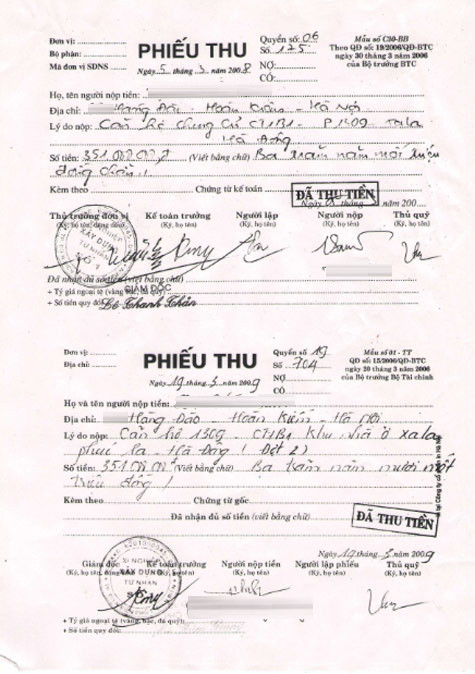 Đơn vị:
Bộ phận:
Mã đơn vị SDNS
PHIẾU THU
Ngày 5 tháng 3 năm 2008
Quyển số: 06
Số 125
NỢ:
CÓ:
Mẫu số C30-BB
Theo QĐ số: 19/2006/QĐ-BTC
ngày 30 tháng 3 năm 2006
của Bộ trưởng BTC
Họ, tên người nộp:
Địa chỉ: Hàng Đào - Hoàn Kiếm - Hà Nội
Lý do nộp: Căn hộ chung cư CT1B1 - P1309 xala
Hà Đông
Số tiền: 351.000.000,đ (Viết bằng chữ) Ba trăm năm mốt triệu
đồng chẵn!
Kèm theo Chứng từ kế toán
ĐÃ THU TIỀN
Ngày tháng 3 năm 200
Thủ trưởng đơn vị Kế toán trưởng Người lập Người nộp Thủ quỹ
(Ký, họ tên, đóng dấu) (Ký, họ tên) (Ký, họ tên) (Ký, họ tên) (Ký, họ tên)
XÂY DỰNG
TƯ NHÂN
GIÁM ĐỐC
Đã nhận đủ số tiền (viết bằng chữ)
+ Tỷ giá ngoại tệ (vàng, bạc, đá quý)
+ Số tiền quy đổi:
Lê Thanh Thản
Đơn vị:
Địa chỉ:
PHIẾU THU
Ngày 19 tháng 5 năm 2009
Quyển số 19
Số 704
NỢ
CÓ
Mẫu số 01 - TT
QĐ số: 15/2006/QĐ-BTC
ngày 20 tháng 3 năm 2006
của Bộ trưởng Bộ Tài chính
Họ và tên người nộp tiền:
Địa chỉ: Hàng Đào - Hoàn Kiếm - Hà Nội
Lý do nộp: Căn hộ 1309 - CT1B1 Khu nhà ở xala
phúc la - Hà Đông (Đợt 2)
Số tiền: 351.000.000đ (Viết bằng chữ) Ba trăm năm mươi mốt
triệu đồng!
Kèm theo Chứng từ gốc
Đã nhận đủ số tiền (viết bằng chữ)
ĐÃ THU TIỀN
Ngày 19 tháng 5 năm 2009
Giám đốc Kế toán trưởng Người nộp tiền Người lập phiếu Thủ quỹ
(Ký, họ tên, đóng dấu) (Ký, họ tên) (Ký, họ tên) (Ký, họ tên) (Ký, họ tên)
XÍ NGHIỆP
XÂY DỰNG
TƯ NHÂN
+ Tỷ giá ngoại tệ (vàng, bạc, đá quý):
+ Số tiền quy đổi: